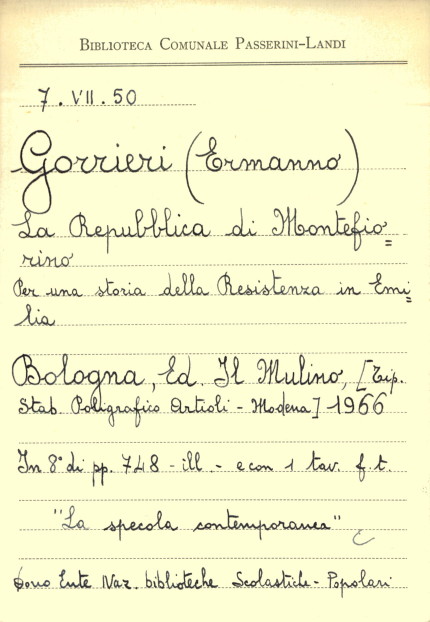 BIBLIOTECA COMUNALE PASSERINI-LANDI
7. VII. 50
Gorrieri (Ermanno)
La Repubblica di Montefio=
rino
Per una storia della Resistenza in Emi=
lia
Bologna, Ed. Il Mulino, [Tip.
Stab. Poligrafico Artioli - Modena] 1966
In 8° di pp. 748 - ill. - e con 1 tav. f. t.
"La specola contemporanea"
Dono Ente Naz. biblioteche Scolastiche - Popolari